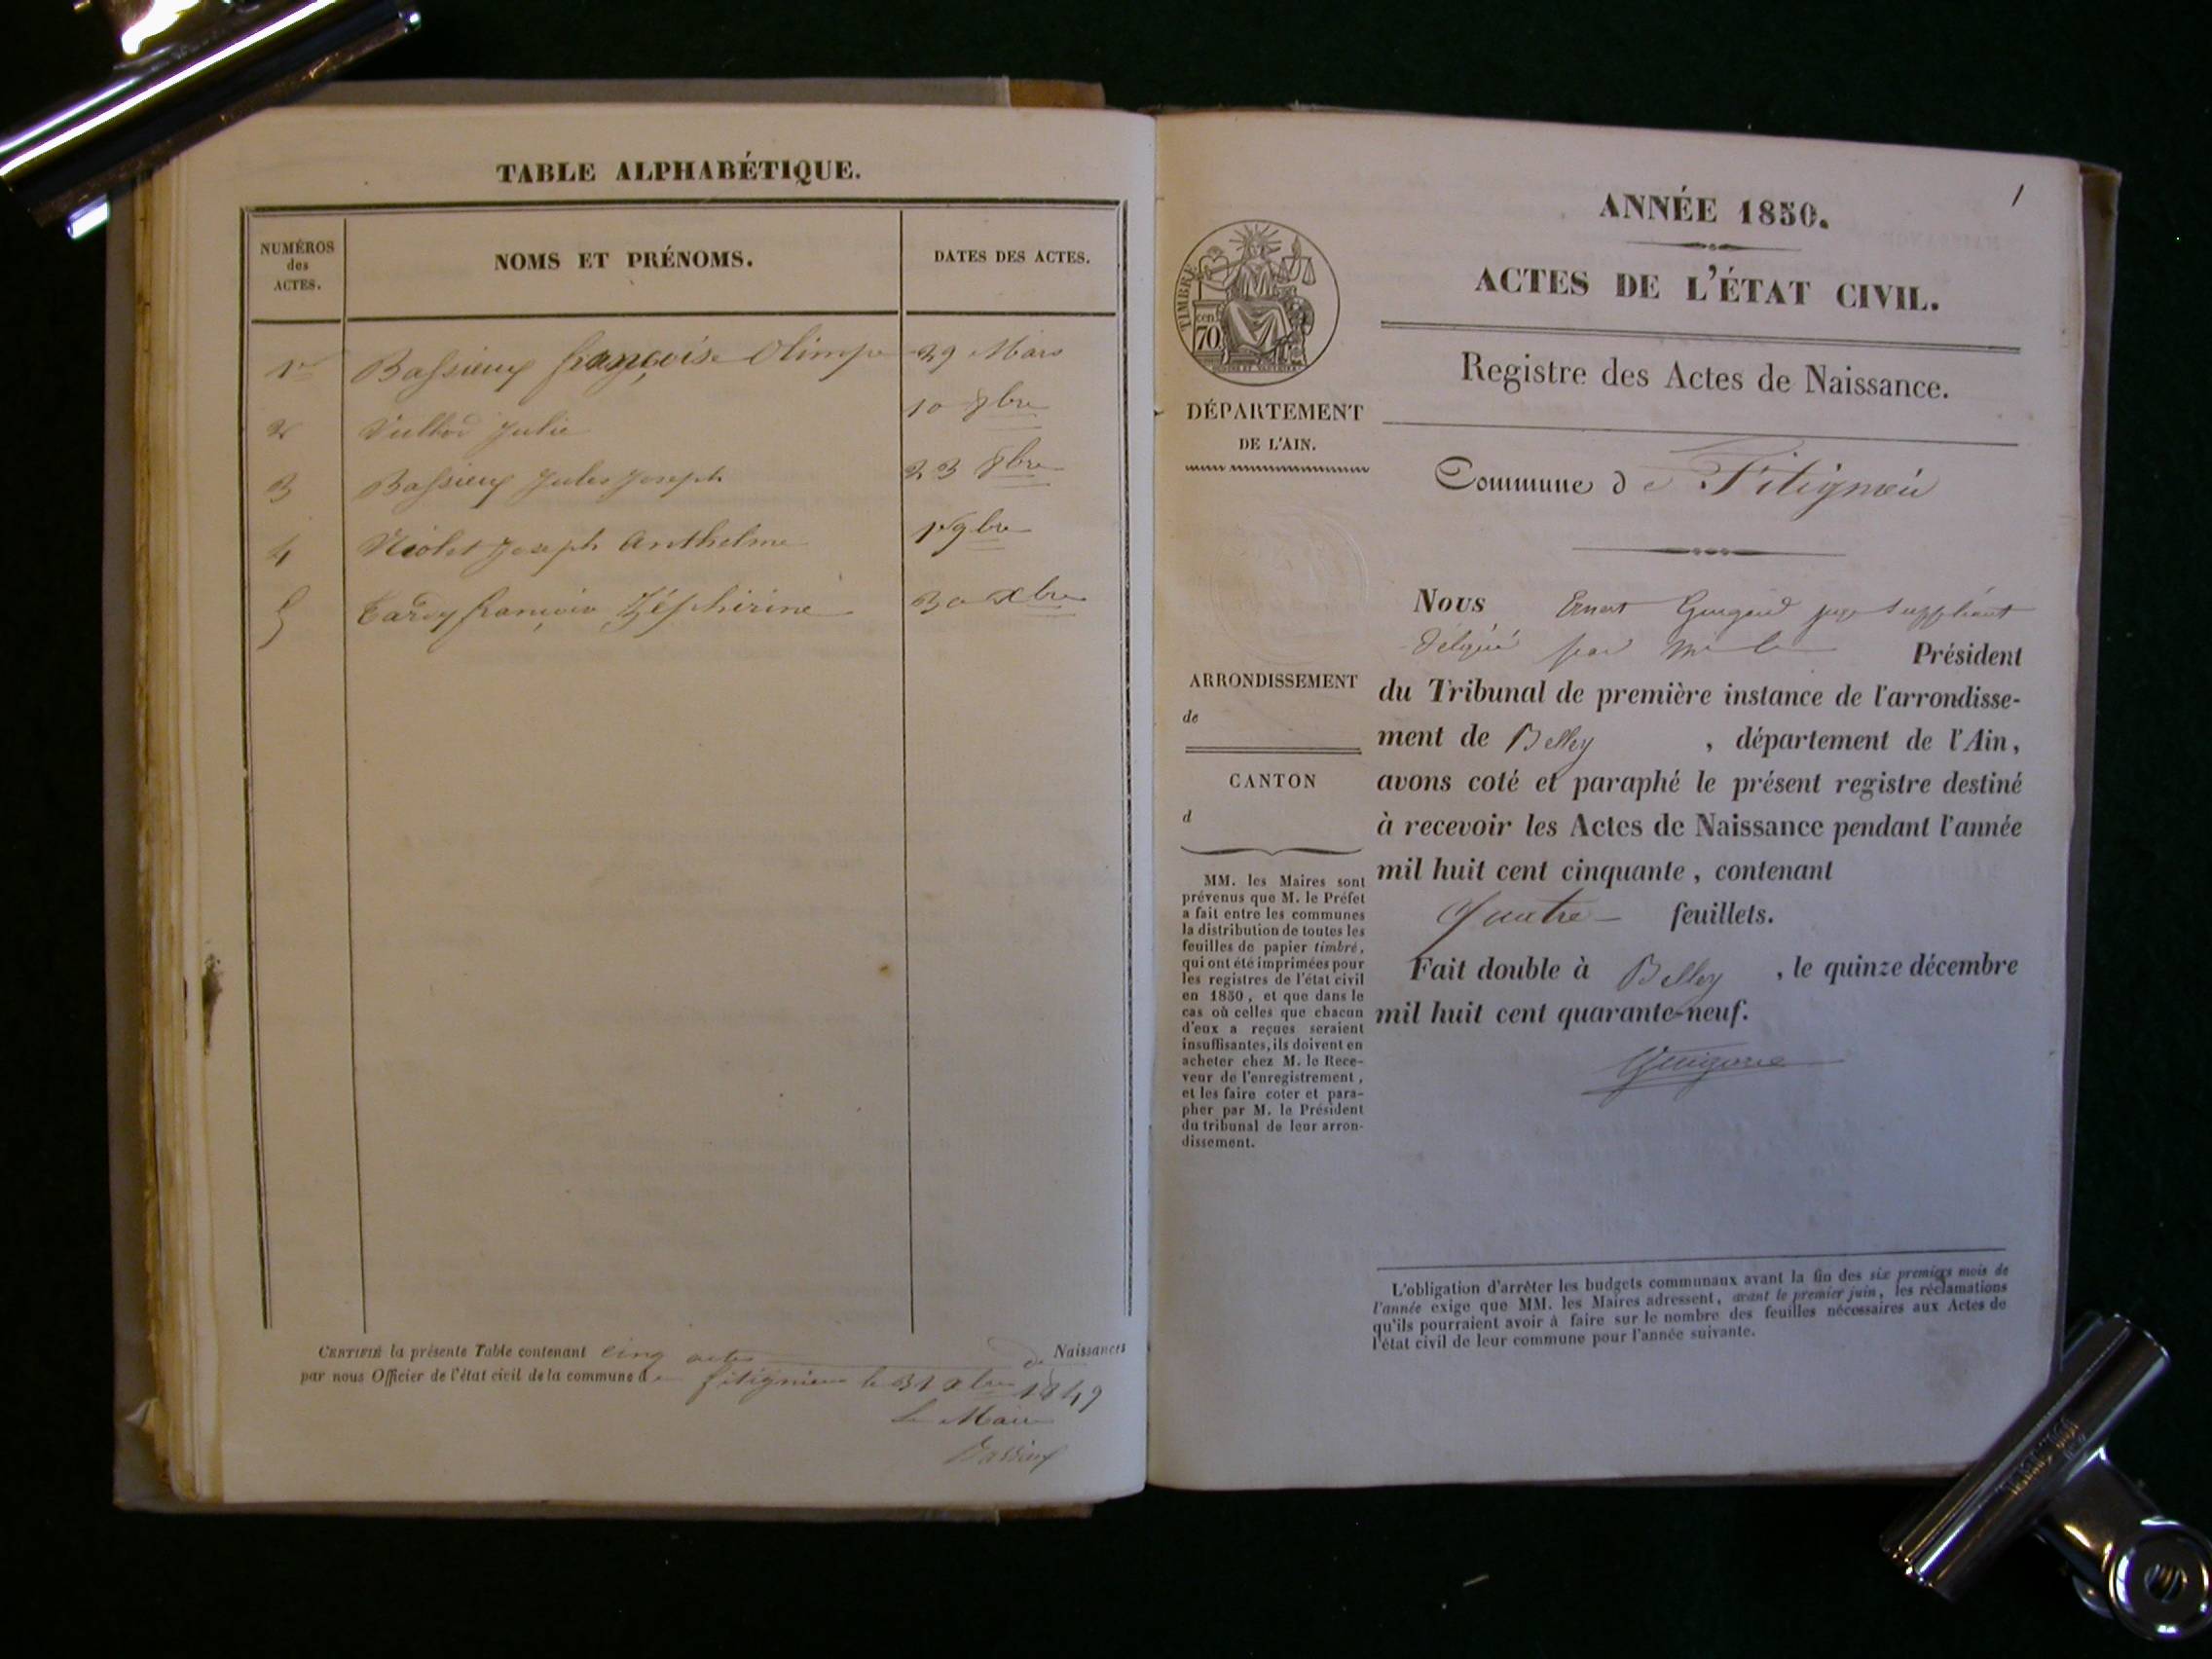 TABLE ALPHABÉTIQUE.
NUMÉROS
des
ACTES.
NOMS ET PRÉNOMS.
DATES DES ACTES.
1er Bassieux françoise Olimpe 29 Mars
2 Julie 10 8bre
3 Bassieux Jules Joseph 23 8bre
4 Violet Joseph Anthelme 1er 9bre
5 Tardy françois Zéphirine 30 Xbre
CERTIFIÉ la présente Table contenant cinq actes de Naissances
par nous Officier de l'état civil de la commune de fitignieu le 31 Xbre 1849
le Maire
Bassieux
1
ANNÉE 1850.
ACTES DE L'ÉTAT CIVIL.
Registre des Actes de Naissance.
TIMBRE
70 cen.
DÉPARTEMENT
DE L'AIN.
Commune de Fitignieu
ARRONDISSEMENT
de
CANTON
d
MM. les Maires sont
prévenus que M. le Préfet
a fait entre les communes
la distribution de toutes les
feuilles de papier timbré,
qui ont été imprimées pour
les registres de l'état civil
en 1850, et que dans le
cas où celles que chacun
d'eux a reçues seraient
insuffisantes, ils doivent en
acheter chez M. le Rece-
veur de l'enregistrement,
et les faire coter et para-
pher par M. le Président
du tribunal de leur arron-
dissement.
Nous Ernest juge suppléant
délégué par Mr le Président
du Tribunal de première instance de l'arrondisse-
ment de Belley , département de l'Ain,
avons coté et paraphé le présent registre destiné
à recevoir les Actes de Naissance pendant l'année
mil huit cent cinquante, contenant
quatre feuillets.
Fait double à Belley , le quinze décembre
mil huit cent quarante-neuf.
L'obligation d'arrêter les budgets communaux avant la fin des six premiers mois de
l'année exige que MM. les Maires adressent, avant le premier juin, les réclamations
qu'ils pourraient avoir à faire sur le nombre des feuilles nécessaires aux Actes de
l'état civil de leur commune pour l'année suivante.